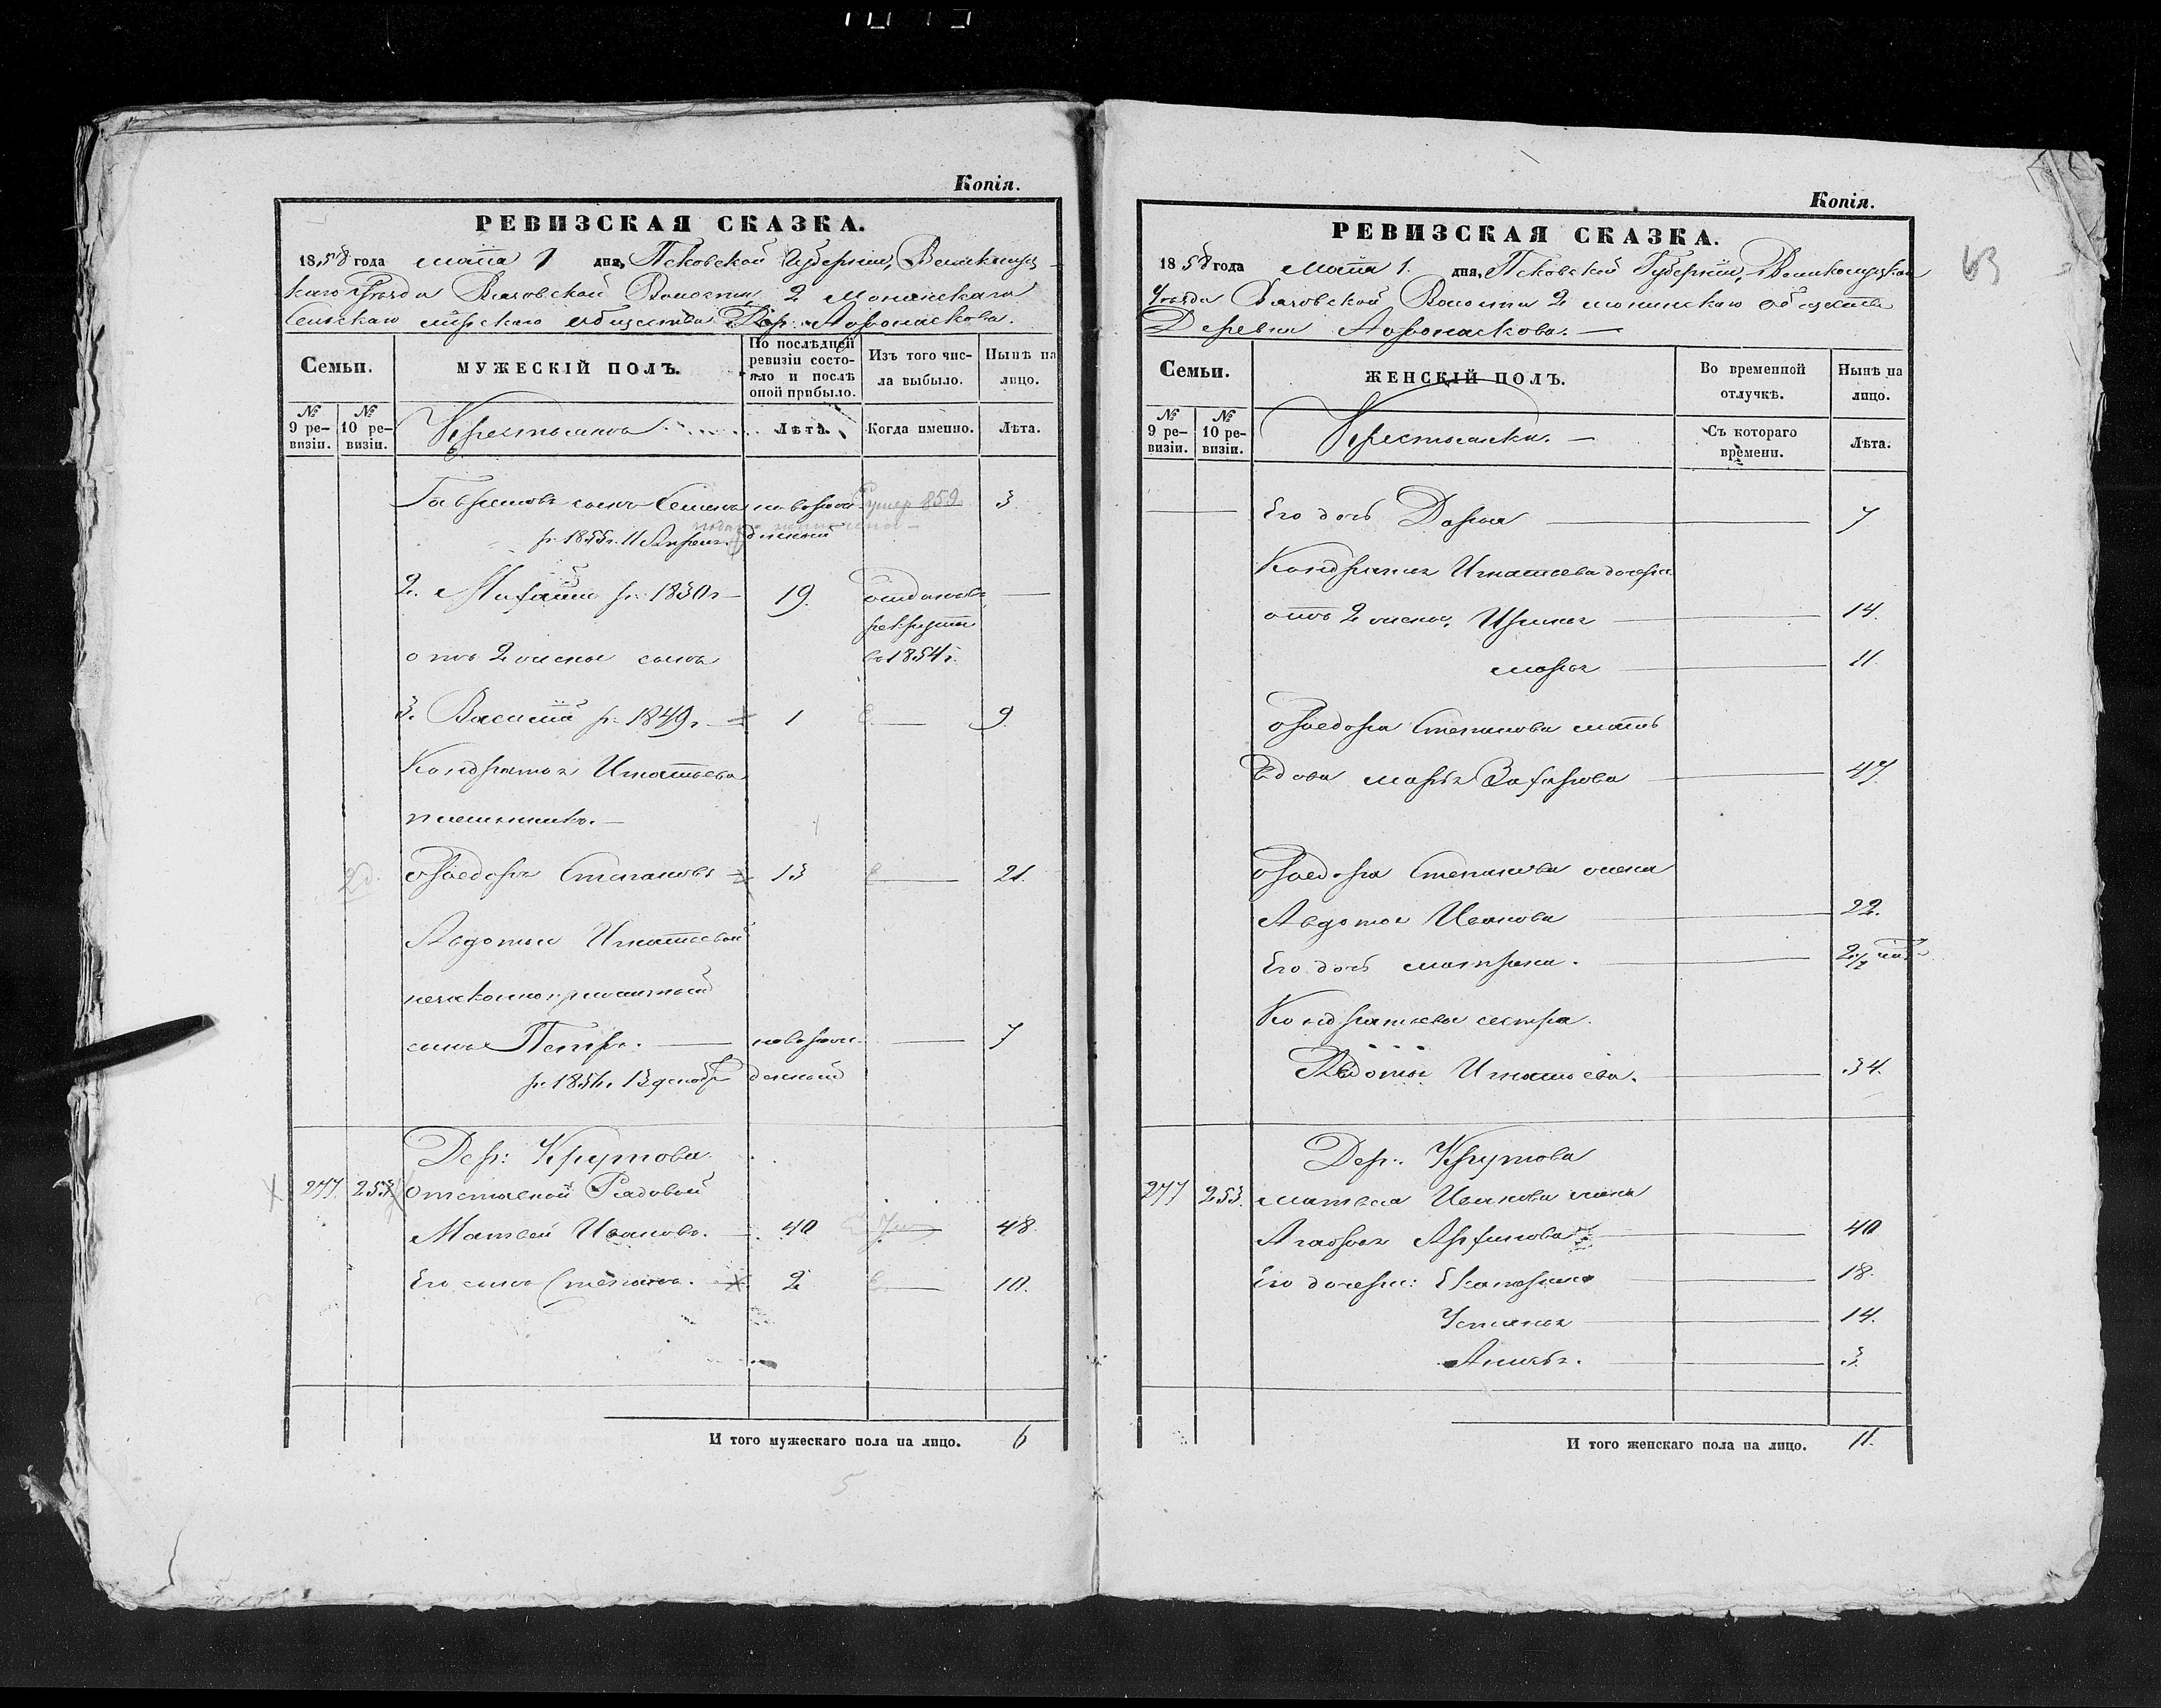 Копія.
РЕВИЗСКАЯ СКАЗКА.
1858 года маiя 1 дня, Псковской Губернии, Великолуц
каго Уѣзда Вязовской Волости 2
сельскаго мірскаго общества Дер:
Семьи.
МУЖЕСКІЙ ПОЛЪ.
По послѣдней ревизіи состояло и послѣ оной прибыло.
Изъ того числа выбыло.
Нынѣ на лицо.
№ 9 ревизіи.
№ 10 ревизіи.
Крестьяне
Лѣта.
Когда именно.
Лѣта.
Гаврилов сынъ Семенъ новорож 3
р. 1855 г. 11 Апреля денный
2. р. 1830 г 19. отданъ въ
рекруты
отъ 2 жены сынъ въ 1854 г.
3. Василій р. 1849 г. 1 9.
Кондратья Игнатьева
племянникъ.
Ѳаедоръ Степановъ 13 21.
Авдотьи Игнатьевой
незаконнорожденный
сынъ Петръ. новорож 7
р. 13 декабр денный
Дер: Крутова
277. 253. Отставной Рядовой
Матвей Ивановъ. 40 48.
Его сынъ Степанъ. 2 10.
И того мужескаго пола на лицо. 6
5
Копія.
РЕВИЗСКАЯ СКАЗКА.
63
1858 года маiя 1. дня, Псковской Губерніи, Великолуцкаго
Уѣзда Вязовской Волости 2 общества
Деревни
Семьи.
ЖЕНСКІЙ ПОЛЪ.
Во временной отлучкѣ.
Нынѣ на лицо.
№ 9 ревизіи.
№ 10 ревизіи.
Крестьянки.
Съ котораго времени.
Лѣта.
Его дочь Дарья 7
Кондратья Игнатьева дочери
отъ 2 жены, Ирина 14.
Марья 11.
Ѳаедора Степанова мать
вдова Марья Захарова 47.
Ѳаедора Степанова жена
Авдотья Иванова 22.
Его дочь Матрена.
Кондратьева сестра.
Авдотья Игнатьева. 34.
Дер: Крутова
277 253. Матвея Иванова жена
Агафья 40
Его дочери: Екатерина 18.
Устинья 14.
3.
И того женскаго пола на лицо. 11.